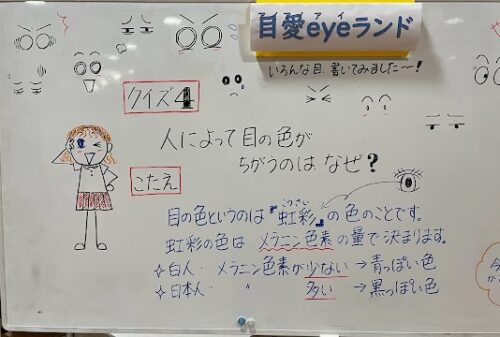 アイアイアイ
目愛eyeランド
いろんな目、書いてみました〜!
クイズ4
人によって目の色が
ちがうのは なぜ?
こたえ
こうさい
目の色というのは『虹彩』の色のことです。
虹彩の色は メラニン色素の量で決まります。
☆白人‥メラニン色素が少ない→青っぽい色
☆日本人‥ 〃 多い→黒っぽい色